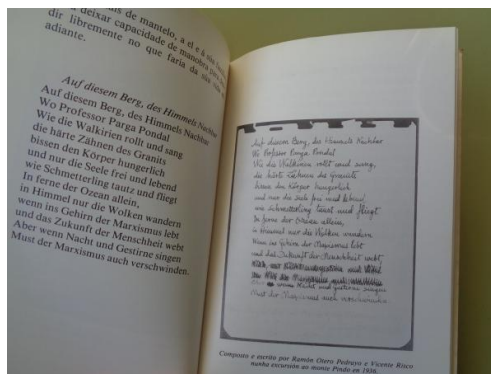 de mantelo, a el e á súa
a deixar capacidade de manobra para
dir libremente no que faría da súa
adiante.
Auf diesem Berg, des Himmels Nachbar
Auf diesem Berg, des Himmels Nachbar
Wo Professor Parga Pondal
Wie die Walkirien rollt und sang
die härte Zähnen des Granits
bissen den Körper hungerlich
und nur die Seele frei und lebend
wie Schmetterling tautz und fliegt
In ferne der Ozean allein,
in Himmel nur die Wolken wandern
wenn ins Gehirn der Marxismus lebt
und das Zukunft der Menschheit webt
Aber wenn Nacht und Gestirne singen
Must der Marxismus auch verschwinden.
Auf diesem Berg, des Himmels Nachbar
Wo Professor Parga Pondal
Wie die Walkirien rollt und sang,
die härte Zähnen des Granits
bissen den Körper hungerlich
und nur die Seele frei und lebend,
wie Schmetterling und fliegt
In ferne der Ozean allein,
in Himmel nur die Wolken wandern
Wenn ins Gehirn der Marxismus lebt
und das Zukunft der Menschheit webt
wenn Nacht und Gestirne singen
Must der Marxismus auch verschwinden
Composto e escrito por Ramón Otero Pedrayo e Vicente Risco
nunha excursión ao monte Pindo en